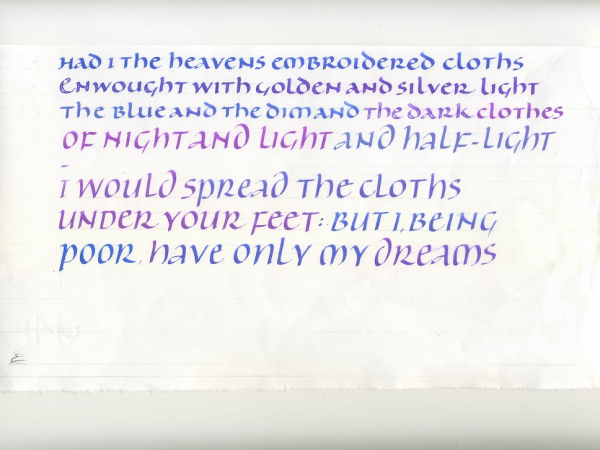 Had I the heavens embroidered cloths
Enwought with golden and silver light
The blue and the dim and the dark clothes
of night and light and half-light
I would spread the cloths
under your feet: but I, being
poor, have only my dreams